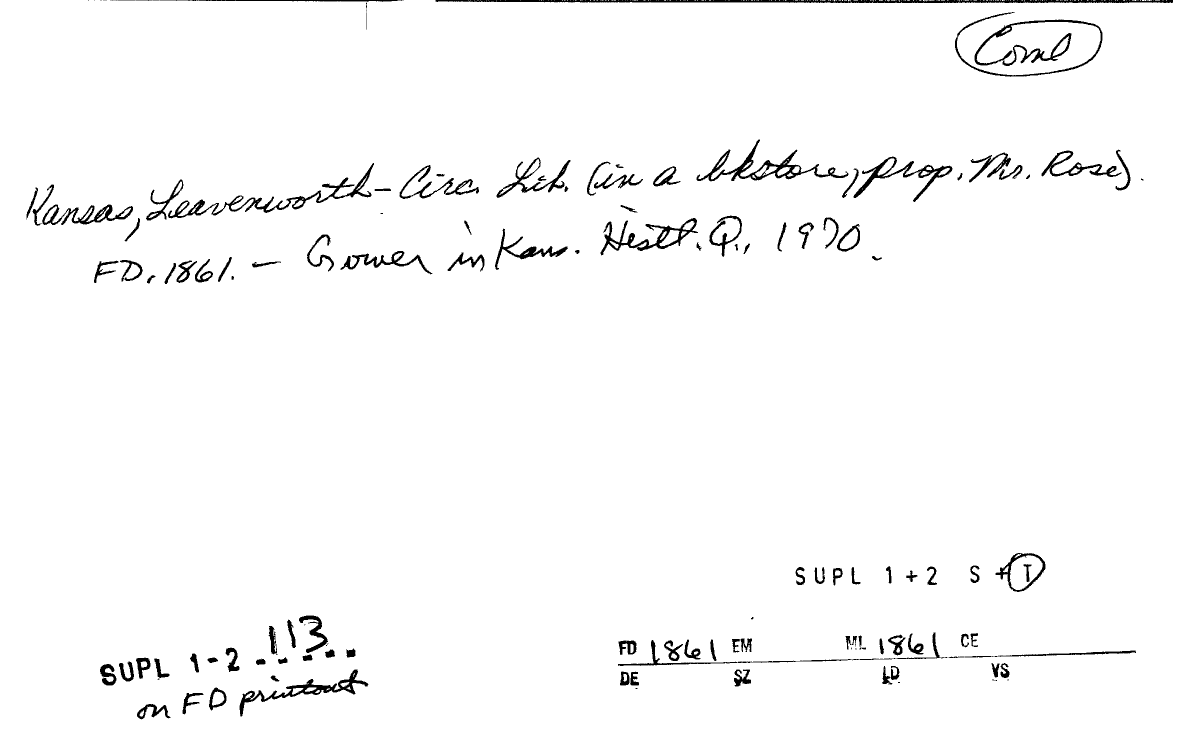 Coml
Kansas, Leavenworth - Circ. Lib. (in a bkstore, prop. Mr. Rose).
FD. 1861. - Gower in Kans. Histl. Q., 1970.
SUPL 1+2 S+T
SUPL 1-2 113
on FD printout
FD 1861 EM ML 1861 CE
DE SZ LD VS